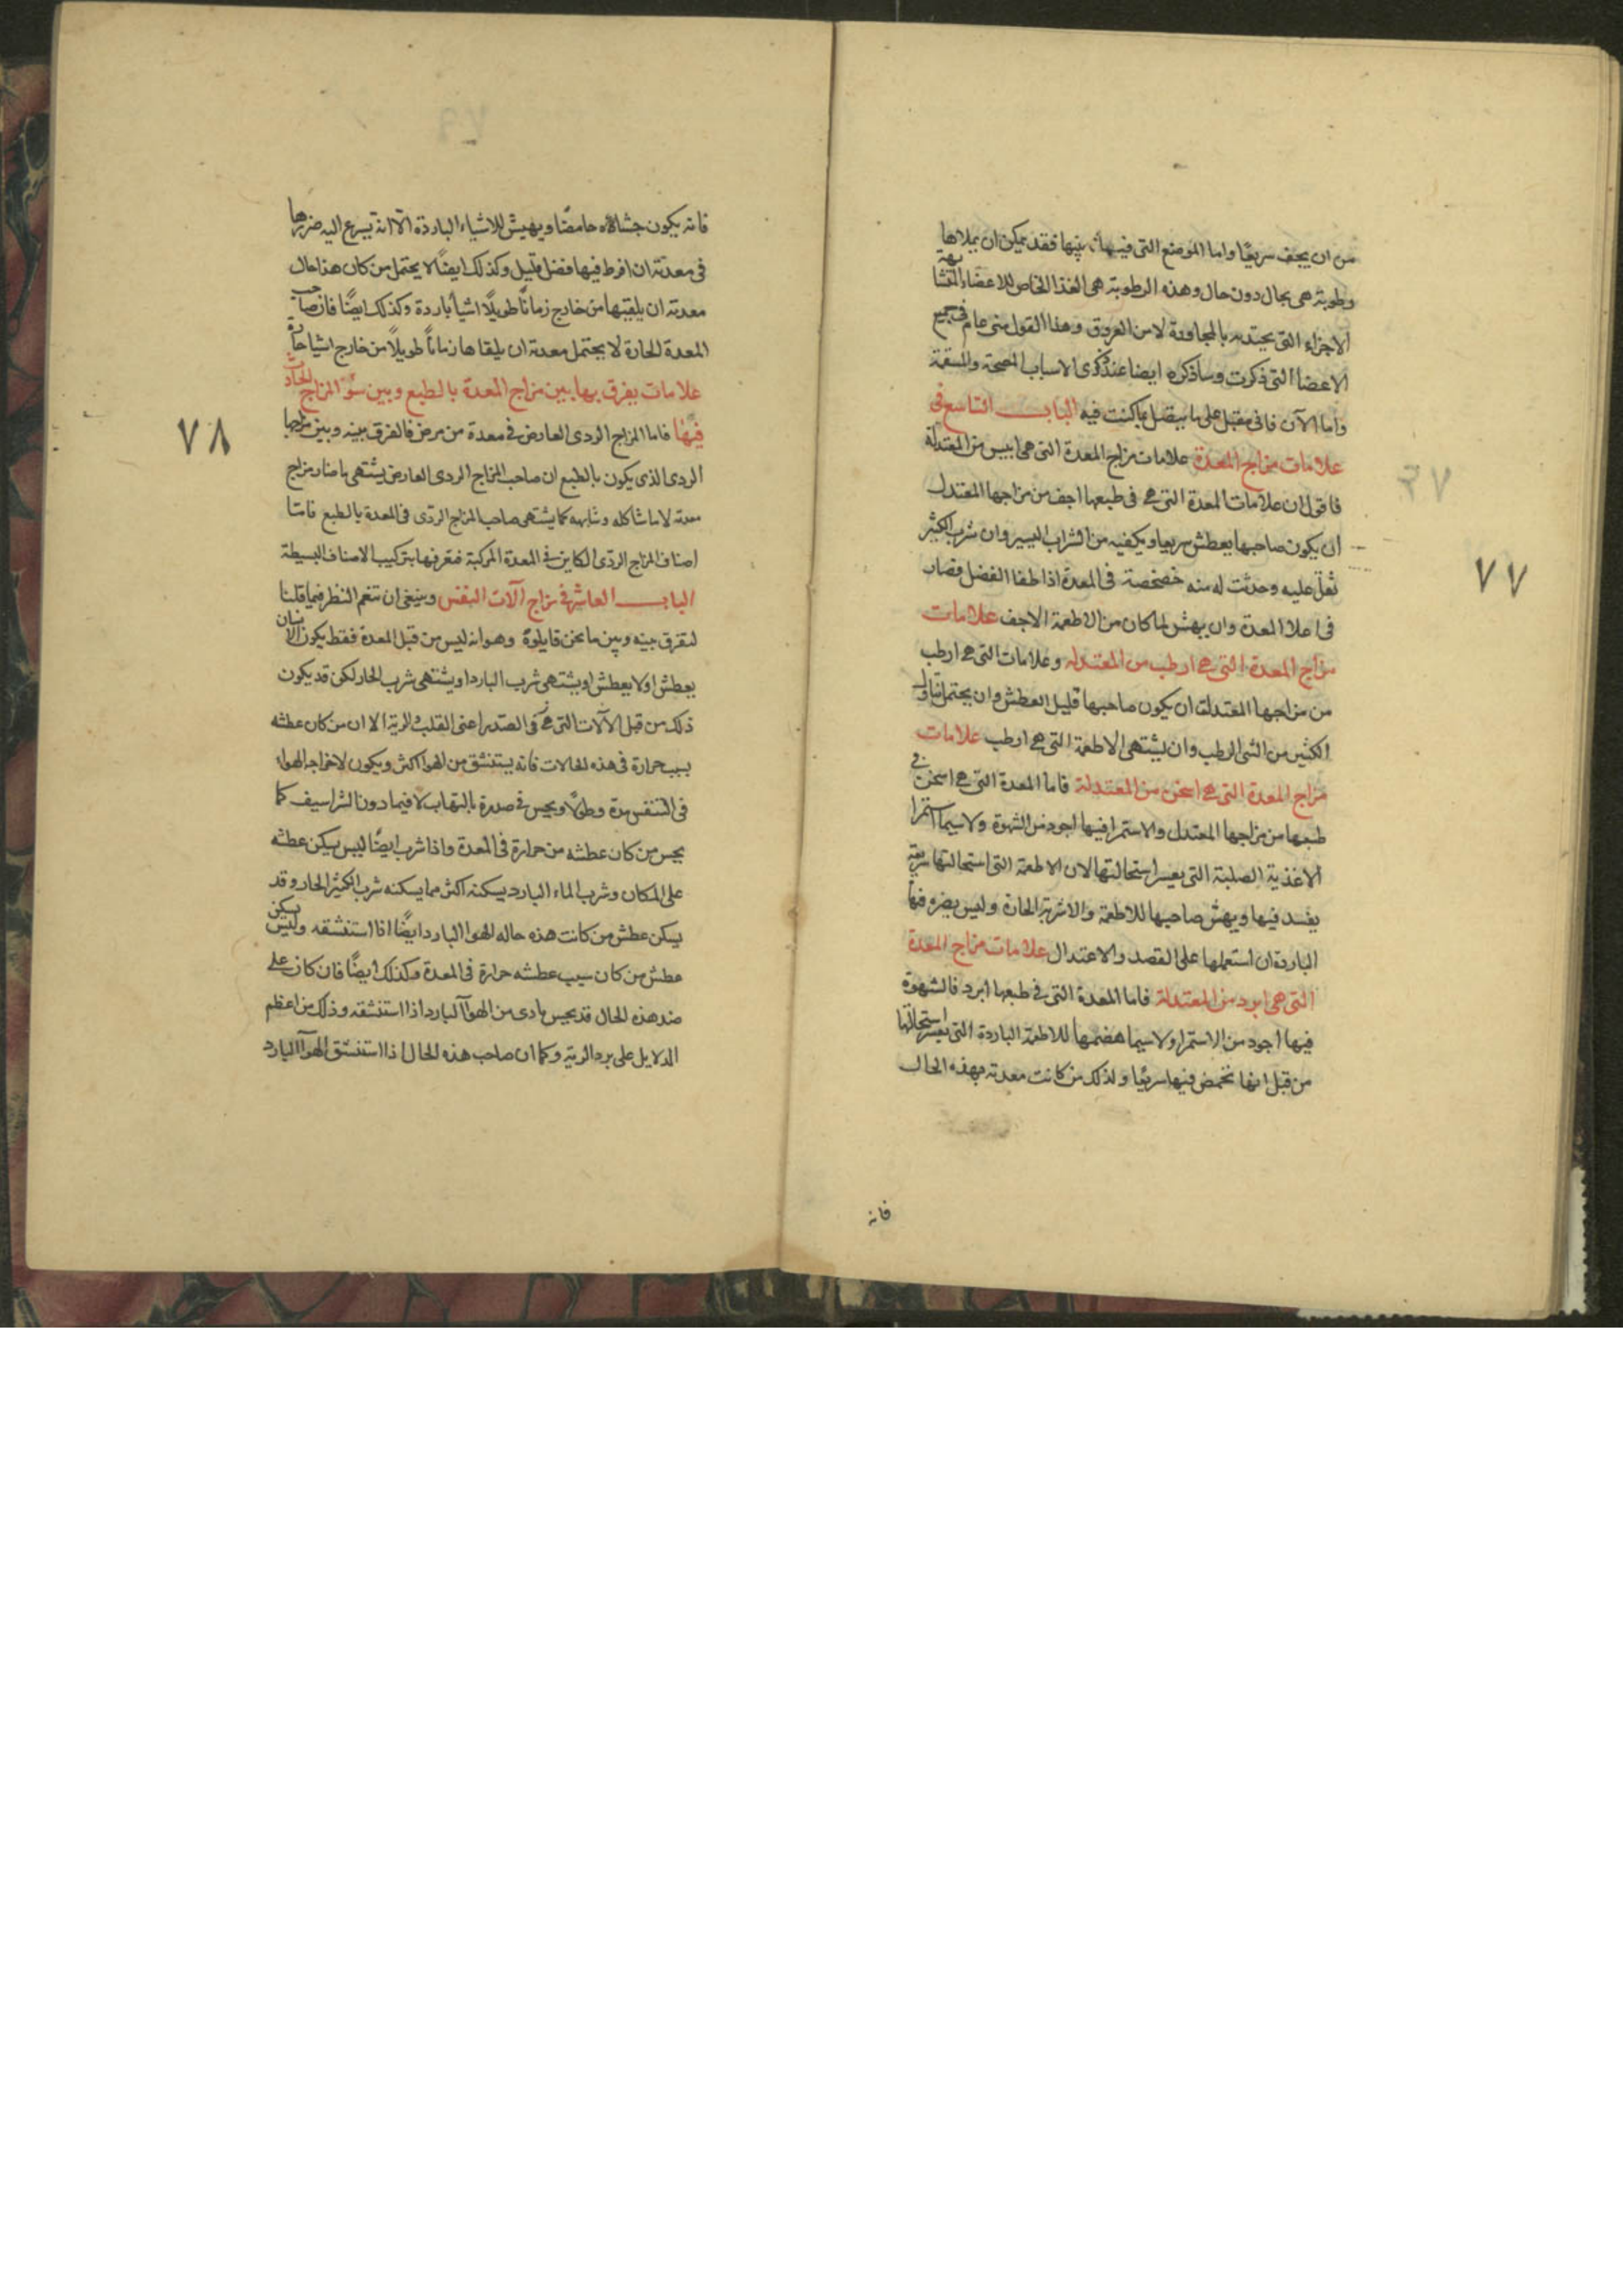 من ان يجف سريعًا واما الموضع التى فيما بينها فقد يمكن ان يملاها
رطوبة هى بحال دون حال وهذه الرطوبة هى الغذا الخاص للاعضاء المتشابهة
الاجزاء التى يجتذبه بالمجاورة لا من العروق وهذا القول منى عام فى جميع
الاعضا التى ذكرت وساذكره ايضا عند ذكرى الاسباب المصحة والمسقمة
واما الآن فانى مقبل على ما يتصل بما كنت فيه الباب التاسع فى
علامات مزاج المعدة علامات مزاج المعدة التى هى ايبس من المعتدلة
فاقول ان علامات المعدة التى هى فى طبعها اجف من مزاجها المعتدل
ان يكون صاحبها يعطش سريعا ويكفيه من الشراب اليسير وان شرب الكثير
ثقل عليه وحدثت له منه خضخضة فى المعدة اذا طفا الفضل فصار
فى اعلا المعدة وان يهش لما كان من الاطعمة الاجف علامات
مزاج المعدة التى هى ارطب من المعتدله وعلامات التى هى ارطب
من مزاجها المعتدلة ان يكون صاحبها قليل العطش وان يحتمل تناول
الكثير من الشى الرطب وان يشتهى الاطعمة التى هى ارطب علامات
مزاج المعدة التى هى اسخن من المعتدلة فاما المعدة التى هى اسخن فى
طبعها من مزاجها المعتدل والاستمرا فيها اجود من الشهوة ولا سيما استمرا
الاغذية الصلبة التى يعسر استحالتها لان الاطعمة التى استحالتها سريعة
يفسد فيها ويهش صاحبها للاطعمة والاشربة الحارة وليس يضره فيها
الباردة ان استعملها على القصد والاعتدال علامات مزاج المعدة
التى هى ابرد من المعتدلة فاما المعدة التى فى طبعها ابرد فالشهوة
فيها اجود من الاستمرا ولا سيما هضمها للاطعمة الباردة التى يعسر استحالتها
من قبل انها تحمض فيها سريعًا ولذلك من كانت معدته بهذه الحال
فانه
٧٧
فانه يكون جشاؤه حامضًا ويهش للاشياء الباردة الا انه يسرع اليه ضررها
فى معدته ان افرط فيها فضل قليل وكذلك ايضًا لا يحتمل من كان هذا حال
معدته ان يلقيها من خارج زمانًا طويلًا اشيا باردة وكذلك ايضًا فان صاحب
المعدة الحارة لا يحتمل معدته ان يلقاها زمانًا طويلًا من خارج اشيا حارة
علامات يفرق بها بين مزاج المعدة بالطبع وبين سؤ المزاج الحادث
فيها فاما المزاج الردى العارض فى معدة من مرض فالفرق بينه وبين مزاجها
الردى الذى يكون بالطبع ان صاحب المزاج الردى العارض يشتهى ما ضاد مزاج
معدته لا ما شاكله وشابهه كما يشتهى صاحب المزاج الردى فى المعدة بالطبع فاما
اصناف المزاج الردى الكاين فى المعدة المركبة فتعرفها بتركيب الاصناف البسيطة
الباب العاشر فى مزاج آلات النفس وينبغى ان تنعم النظر فيما قلنا
لتفرق بينه وبين ما نحن قايلوه وهو انه ليس من قبل المعدة فقط يكون الانسان
يعطش او لا يعطش او يشتهى شرب البارد او يشتهى شرب الحار لكن قد يكون
ذلك من قبل الآلات التى هى فى الصدر اعنى القلب والرية الا ان من كان عطشه
بسبب حرارة فى هذه الحالات فانه يستنشق من الهوا اكثر ويكون لاخراجه الهواء
فى التنفس مدة وطول ويحس فى صدره بالتهاب لا فيما دون الشراسيف كما
يحس من كان عطشه من حرارة فى المعدة واذا شرب ايضًا ليس يسكن عطشه
على المكان وشرب الماء البارد يسكنه اكثر مما يسكنه شرب الكثير الحار وقد
يسكن عطش من كانت هذه حاله الهوا البارد ايضًا اذا استنشقه وليس يسكن
عطش من كان سبب عطشه حرارة فى المعدة وكذلك ايضًا فان كان على
ضد هذه الحال قد يحس باذى من الهوآ البارد اذا استنشقه وذلك من اعظم
الدلايل على برد الرية وكما ان صاحب هذه الحال اذا استنشق الهوآ البارد
٧٨